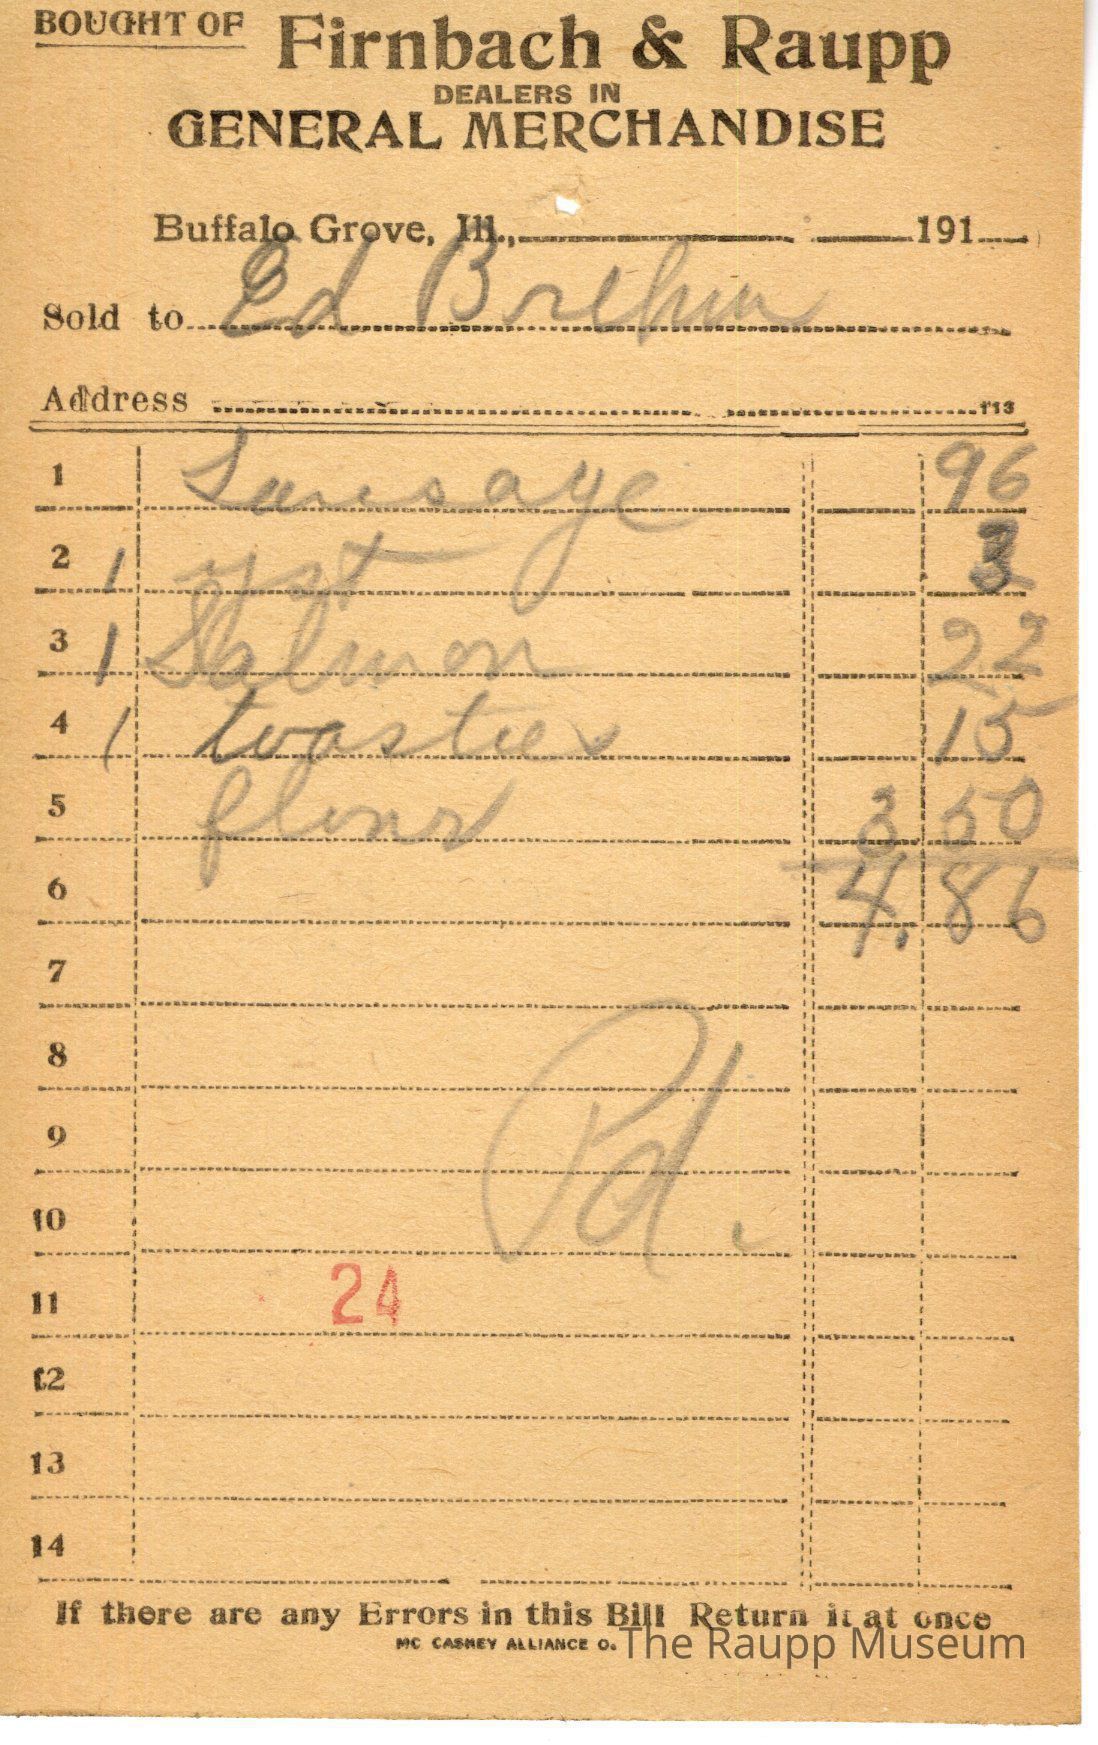 BOUGHT OF Firnbach & Raupp
DEALERS IN
GENERAL MERCHANDISE
Buffalo Grove, Ill., 191
Sold to Ed Brehm
Address 113
1 Sausage 96
2 1 yst 3
3 1 Salmon 22
4 1 toasties 15
5 flour 3 50
6 4. 86
7
8
Pd.
9
10
11 24
12
13
14
If there are any Errors in this Bill Return it at once
MC CASKEY ALLIANCE O.
The Raupp Museum